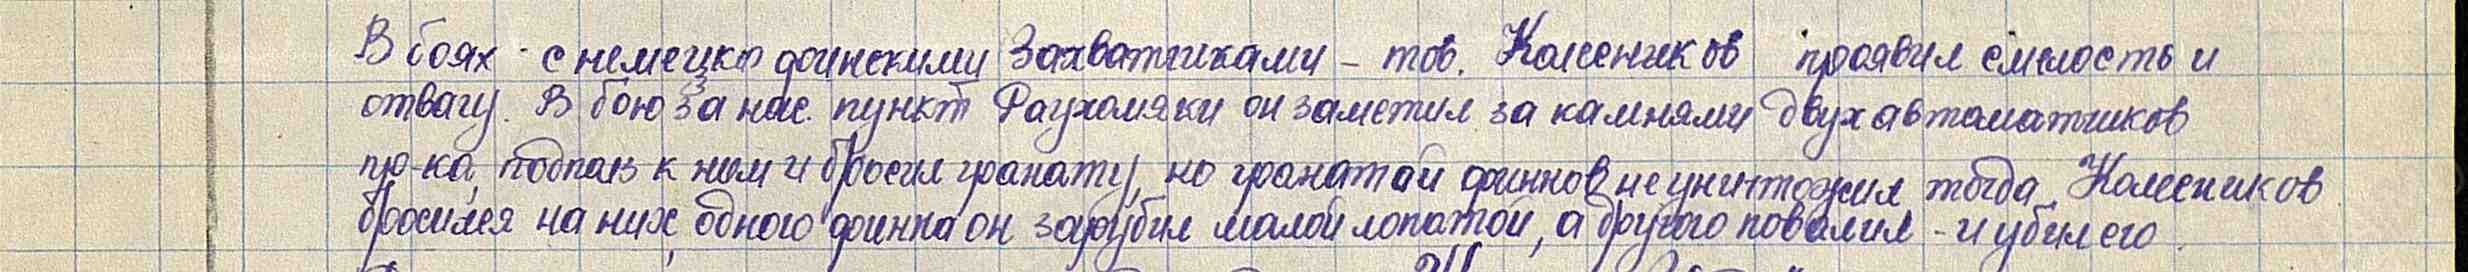 В боях - с немецко финскими захватчиками - тов. Колесников проявил смелость и
отвагу. В бою за нас. пункт Раухомяки он заметил за камнями двух автоматчиков
пр-ка, подполз к ним и бросил гранату, но гранатой финнов не уничтожил тогда Колесников
бросился на них, одного финна он зарубил малой лопатой, а другого повалил - и убил его.